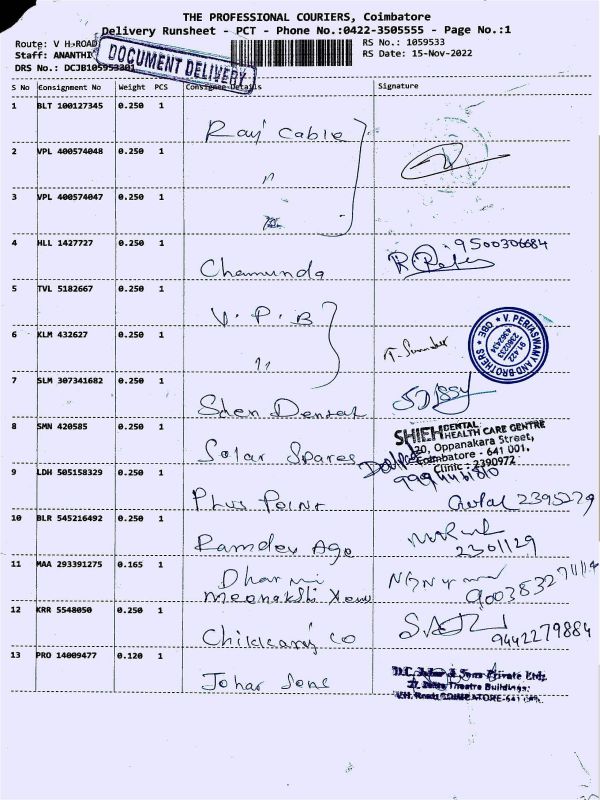 THE PROFESSIONAL COURIERS, Coimbatore
Delivery Runsheet - PCT - Phone No.:0422-3505555 - Page No.:1
Route: V H ROAD
RS No.: 1059533
Staff: ANANTHI
RS Date: 15-Nov-2022
DRS No.: DCJB1059533201
DOCUMENT DELIVERY
S No Consignment No Weight PCS Consignee Details Signature
1 BLT 100127345 0.250 1
Raj Cable
2 VPL 400574048 0.250 1
"
3 VPL 400574047 0.250 1
4 HLL 1427727 0.250 1
9500306684
Chamunda
5 TVL 5182667 0.250 1
V. P. B
6 KLM 432627 0.250 1
"
V. PERIASWAMY AND BROTHERS
CBE
91 422
2380233
4382434
7 SLM 307341682 0.250 1
Shen Dental
8 SMN 420585 0.250 1
SHIEH DENTAL HEALTH CARE CENTRE
20, Oppanakara Street,
Coimbatore - 641 001.
Clinic : 2390972
Solar Spares
9 LDH 505158329 0.250 1
Plus Point
2395279
10 BLR 545216492 0.250 1
Ramdev Age
2301129
11 MAA 293391275 0.165 1
Dharani
Meenakshi
12 KRR 5548050 0.250 1
Chikkanji Co
9442279884
13 PRO 14009477 0.120 1
Johar Sons
D.C. Johar & Sons Private Ltd.
Theatre Buildings,
V.H. Road, COIMBATORE-641